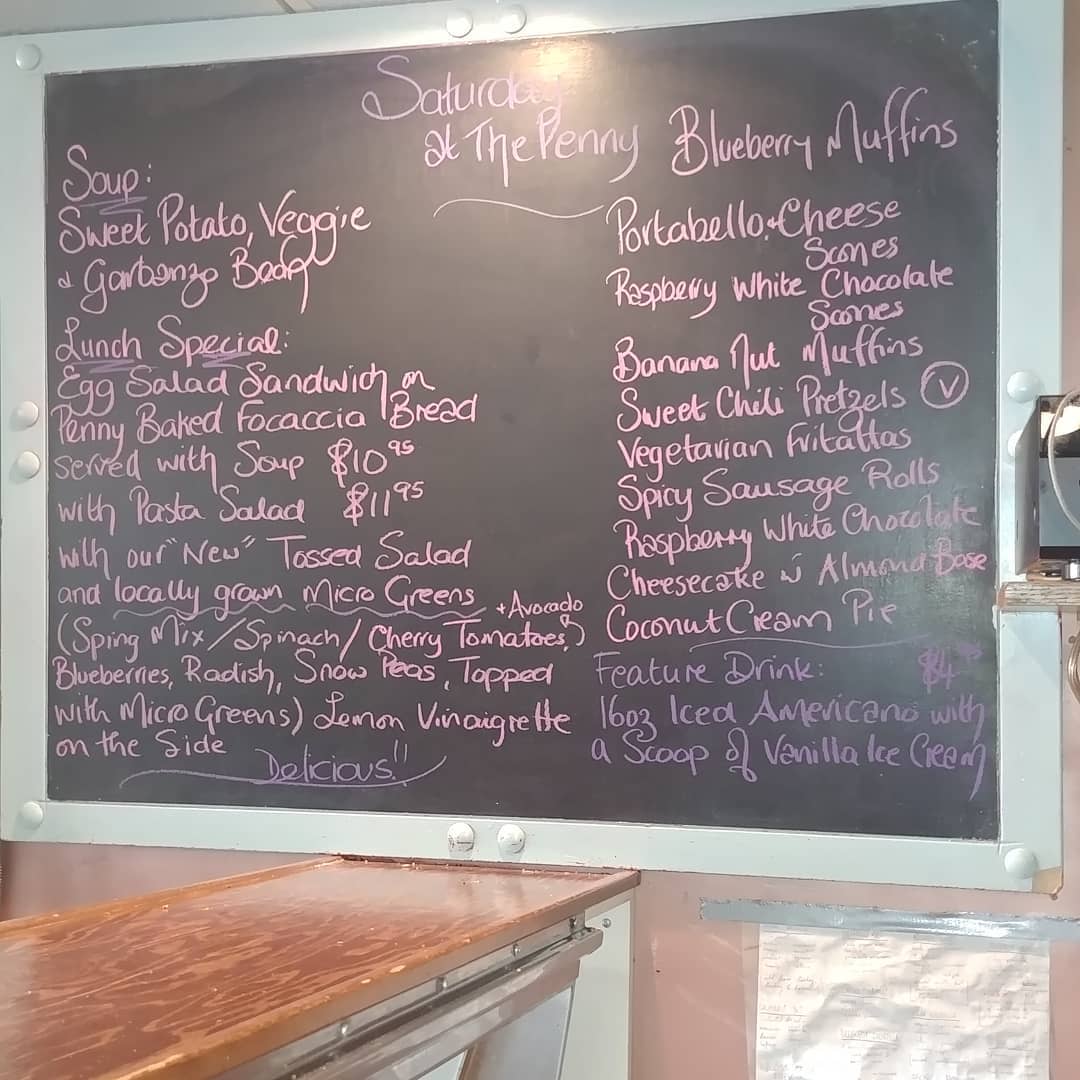 Saturday
at The Penny
Soup:
Sweet Potato, Veggie
& Garbonzo Bean
Lunch Special:
Egg Salad Sandwich on
Penny Baked Focaccia Bread
served with Soup $10 95
with Pasta Salad $11 95
with our "New" Tossed Salad
and locally grown Micro Greens
+ Avocado
(Sping Mix / Spinach / Cherry Tomatoes,)
Blueberries, Radish, Snow Peas, Topped
with Micro Greens) Lemon Vinaigrette
on the Side
Delicious!!
Blueberry Muffins
Portabello & Cheese
Scones
Raspberry White Chocolate
Scones
Banana Nut Muffins
Sweet Chili Pretzels V
Vegetarian Fritattas
Spicy Sausage Rolls
Raspberry White Chocolate
Cheesecake w Almond Base
Coconut Cream Pie
Feature Drink: $4
16oz Iced Americano with
a Scoop of Vanilla Ice Cream